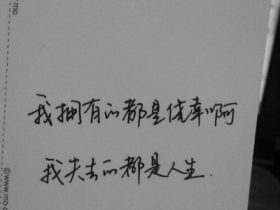 我拥有的都是侥幸啊
我失去的都是人生.